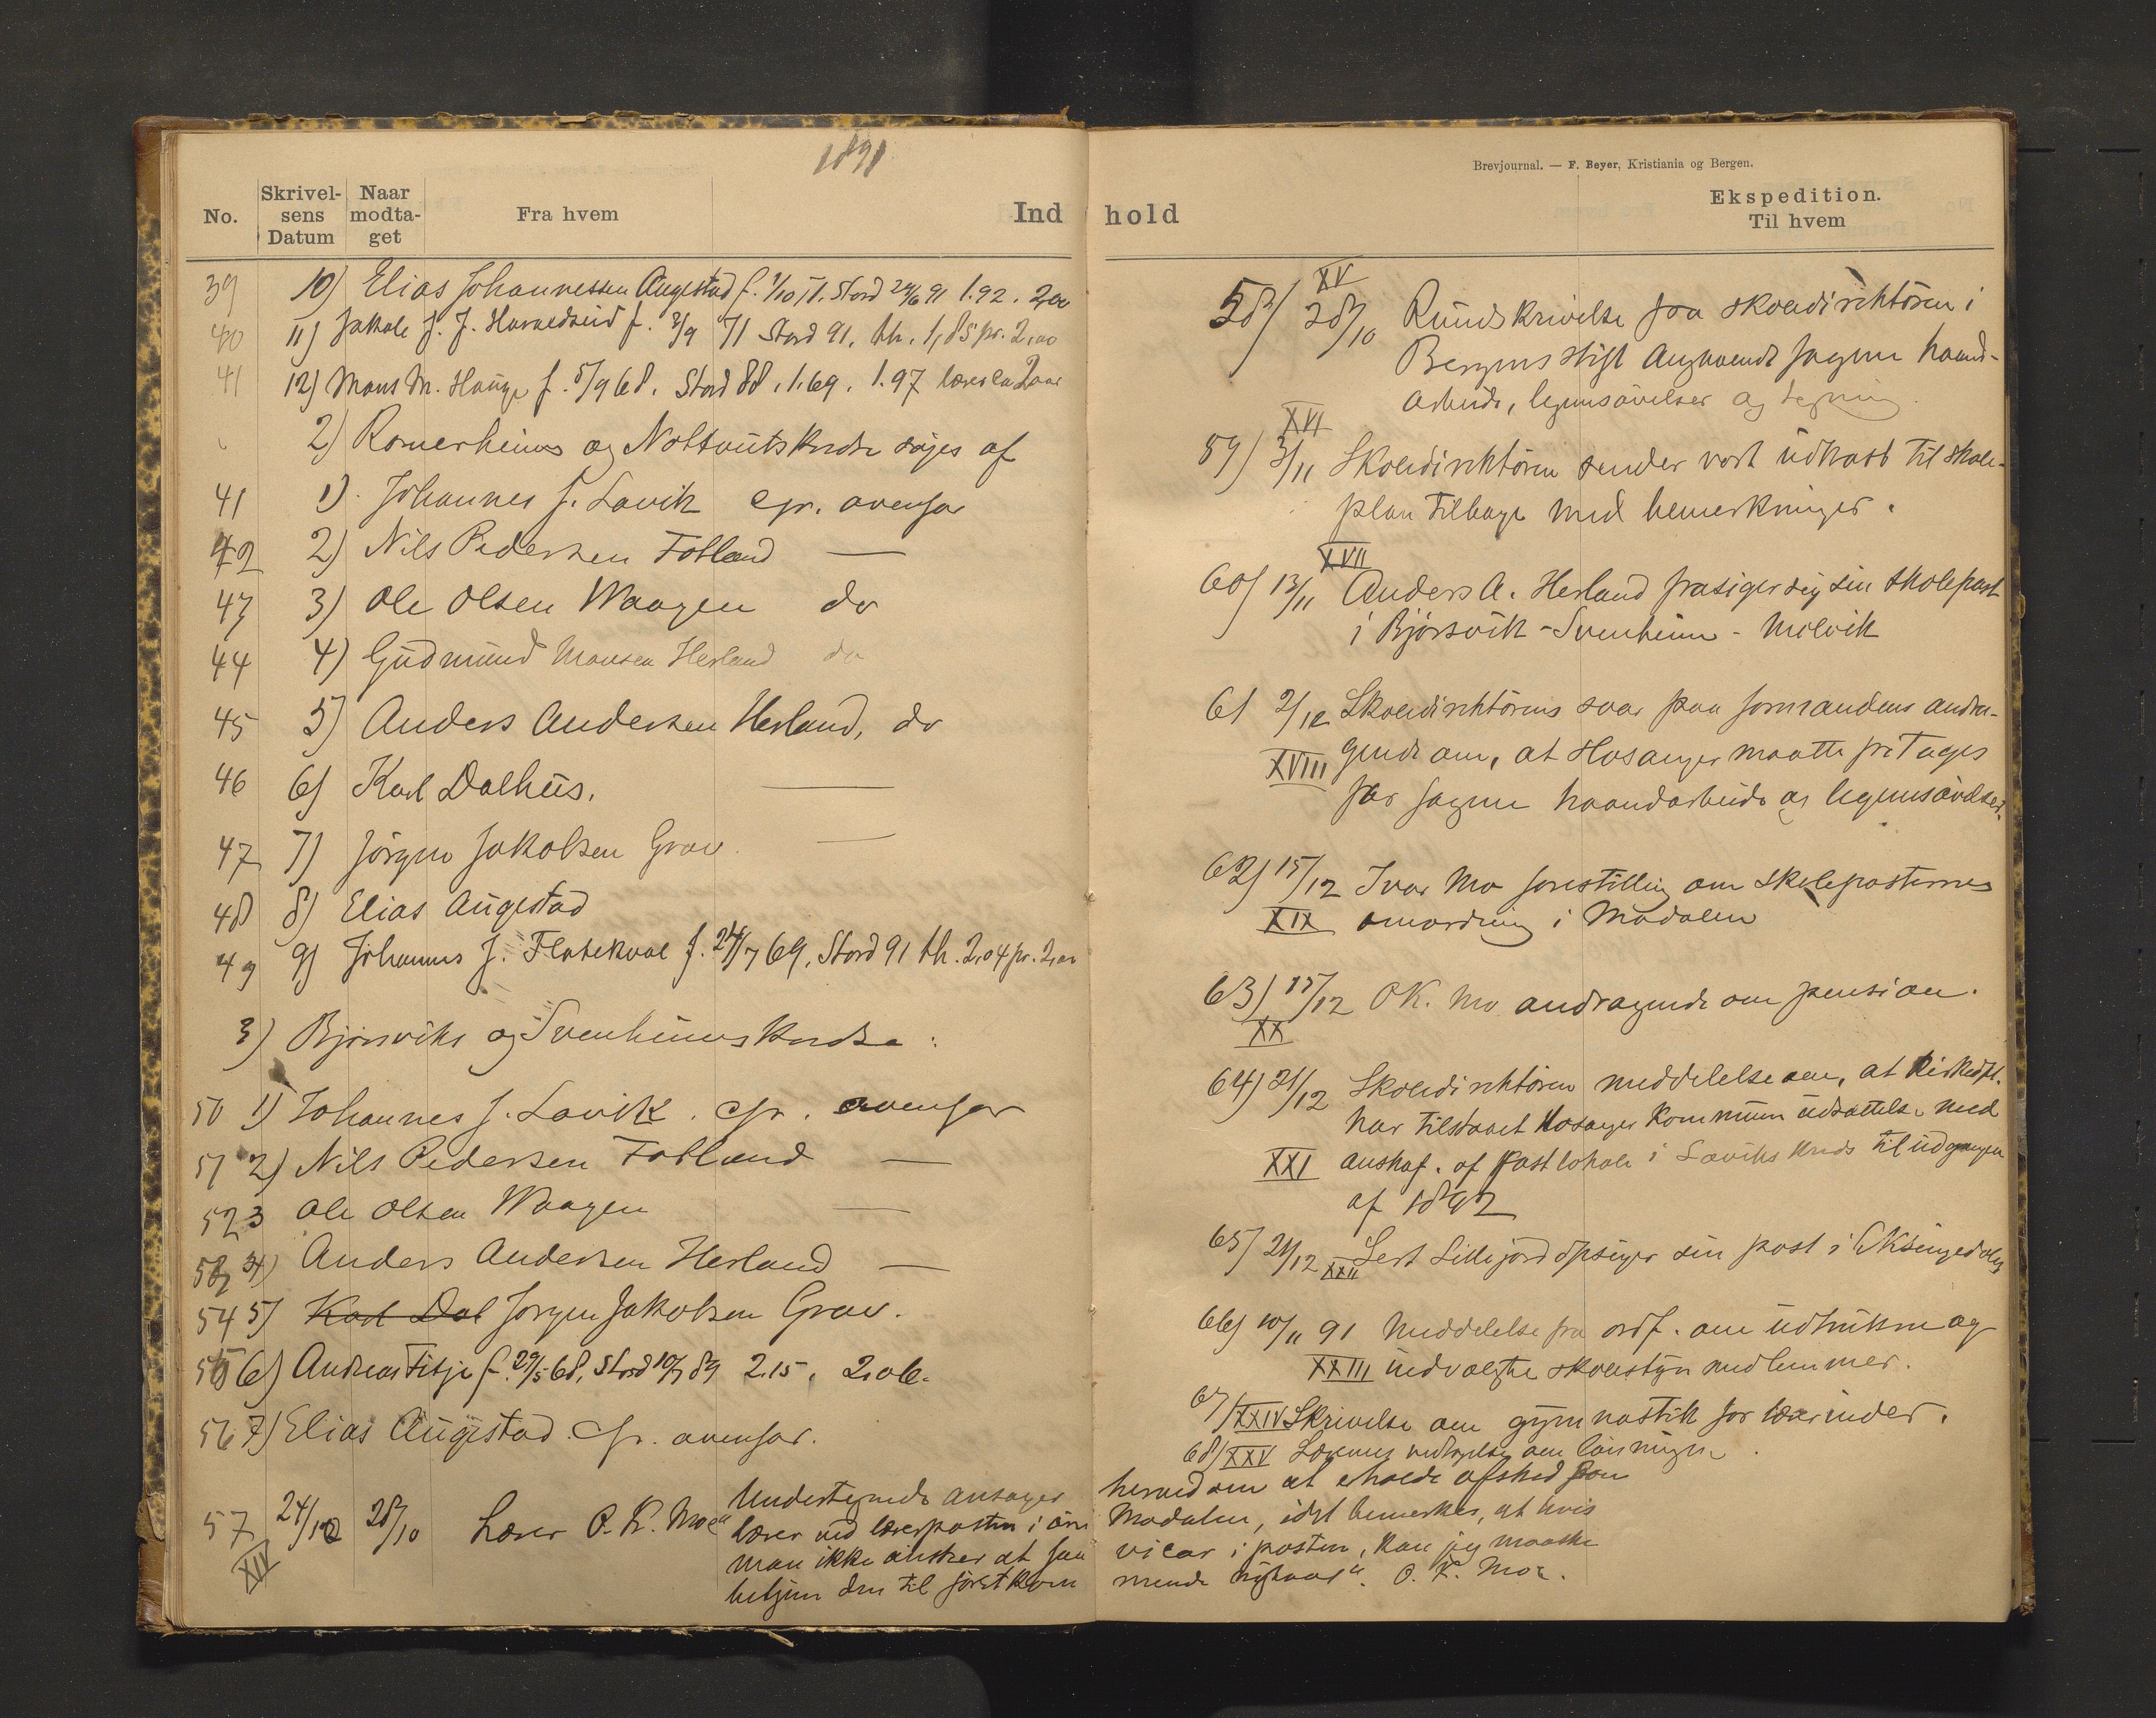 1891
No.
Skrivel-
sens
Datum
Naar
modta-
get
Fra hvem
Ind
39 10) Elias Johannessen Augestad f. 1/10 71. Stord 24/6 91 1.92. 2,00
40 11) Jakob J. J. Hummedseid f. 3/9 71 Stord 91. th. 1,85 pr. 2,00
41 12) Mons M. Hauge f. 5/9 68. Stord 88. 1.69. 1.97 lærer ca 2 aar
2) Romerheims og Nottveitskredse søges af
41 1). Johannes J. Lavik cfr. ovenfor
42 2) Nils Pedersen Fotland —
43 3) Ole Olsen Waagen do
44 4) Gudmund Monsen Herland do
45 5) Anders Andersen Herland, do
46 6) Karl Dalhus. —
47 7) Jörgen Jakobsen Grov —
48 8) Elias Augestad
49 9) Johannes J. Flatekval f. 24/7 69. Stord 91 th. 2,04 pr. 2,00
3) Bjørsviks og Svenheimskredse:
50 1) Johannes J. Lavik. cfr. ovenfor
51 2) Nils Pedersen Fotland —
52 3 Ole Olsen Waagen —
53 4) Anders Andersen Herland —
54 5) Karl Dal Jørgen Jakobsen Grov.
55 6) Andreas Fitje f. 29/5 68, Stord 10/7 89 2.15. 2,06.
56 7) Elias Augestad. Cfr. ovenfor.
57 24/10 28/10 Lærer O. K. Moe "Undertegnede ansøger
XIV lærer ved lærerposten i øvre
man ikke ønsker at faa
betjene den til førstkom
Brevjournal. — F. Beyer, Kristiania og Bergen.
hold
Ekspedition.
Til hvem
XV
58) 28/10 Rundskrivelse fra skoledirektören i
Bergens stift angaaende fagene haand-
arbeide, legemsøvelser og tegning.
XVI
59) 3/11 Skoledirektören sender vort udkast til skole-
plan tilbage med bemerkninger.
XVII
60) 13/11 Anders A. Herland frasiger sig sin skolepost
i Bjørsvik - Svenheim - Molvik
61 2/12 Skoledirektörens svar paa formandens andra-
XVIII gende om, at Hosanger maatte fritages
for fagene haandarbeide og legemsøvelser.
62) 15/12 Ivar Mo forestilling om skoleposternes
XIX omordning i Modalen
63) 15/12 O K. Mo andragende om pension.
XX
64) 21/12 Skoledirektören meddelelse om, at kirkedpt.
har tilstaaet Hosanger kommune udsættelse med
XXI anskaf. af fast lokale i Laviks kreds til udgangen
af 1892
65) 21/12 XXII Lert Lillejord opsiger sin post i Eksingedalen
66) 10/11 91 Meddelelse fra ordf. om udtrukne og
XXIII indvalgte skolestyremedlemmer.
67) XXIV Skrivelse om gymnastik for lærerinder.
68) XXV Lærernes vedtagelse om lønningen.
herved om at erholde afsked som
Modalen, idet bemerkes, at hvis
vicar i posten, kan jeg maaske
mende nytaar". O. K. Moe.